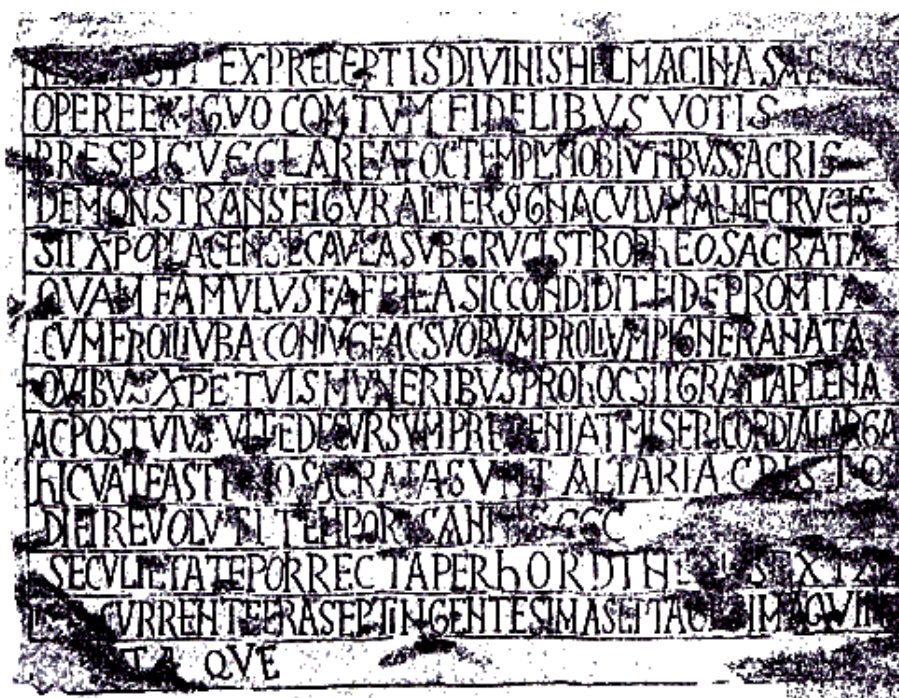 EX PRECEPTIS DIVINIS HEC MACINA
OPERE EXIGVO COMTVM FIDELIBVS VOTIS
PRESPICVE CLAREAT OC TEMPLVM OBTVTIBVS SACRIS
DEMONSTRANS FIGVRALITER SIGNACVLVM ALME CRVCIS
SIT XPO PLACENS EC AVLA SVB CRVCIS TROPhEO SACRATA
QVAM FAMVLVS FAFEILA SIC CONDIDIT FIDE PROMTA
CVM FROILIVBA CONIVGE AC SVORVM PROLIVM PIGNERA NATA
QVIBVS XPE TVIS MVNERIBVS PRO hOC SIT GRATIA PLENA
AC POST VIVS VITE DECVRSVM PREVENIAT MISERICORDIA LARGA
hIC VATE SACRATA SVNT ALTARIA CRISTO
DIEI REVOLVTI TEMPORIS ANNI CCC
SECVLI ETATE PORRECTA PER hORDINEM SEXTA
CVRRENTE ERA SEPTINGENTESIMA SEPTAGESIMA QVIN
TA QVE